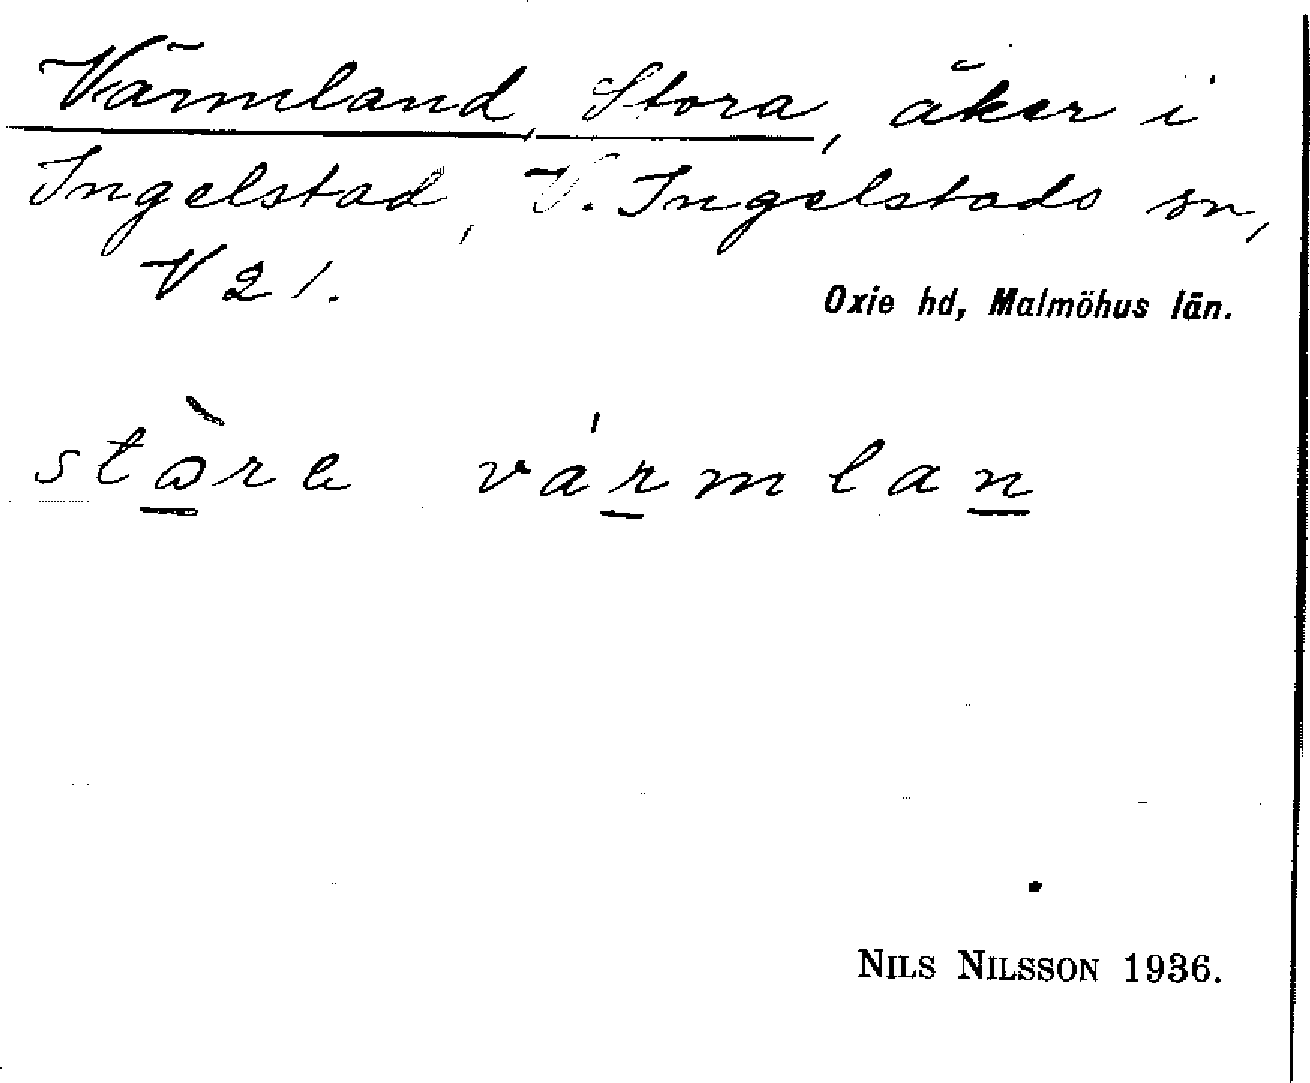 Värmland, Stora, åker i
Ingelstad, V. Ingelstads sn,
V 21.
Oxie hd, Malmöhus län.
stòra vármlan
NILS NILSSON 1936.